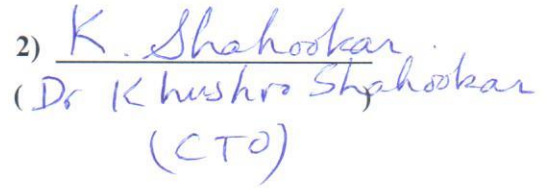 2) K. Shahookar.
(Dr Khushro Shahookar)
(CTO)